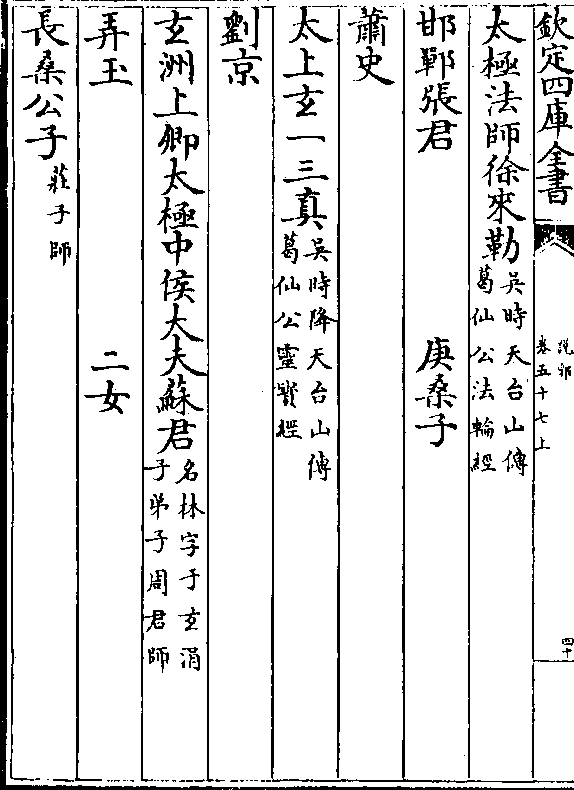 欽定四庫全書
說郛
卷五十七上
四十
太極法師徐來勒吳時天台山傳
葛仙公法輪經
邯鄲張君 庚桑子
蕭史
太上玄一三真吳時降天台山傳
葛仙公靈寳經
劉京
玄洲上卿太極中侯大夫蘇君名林字子玄涓
子弟子周君師
弄玉 二女
長桑公子莊子師